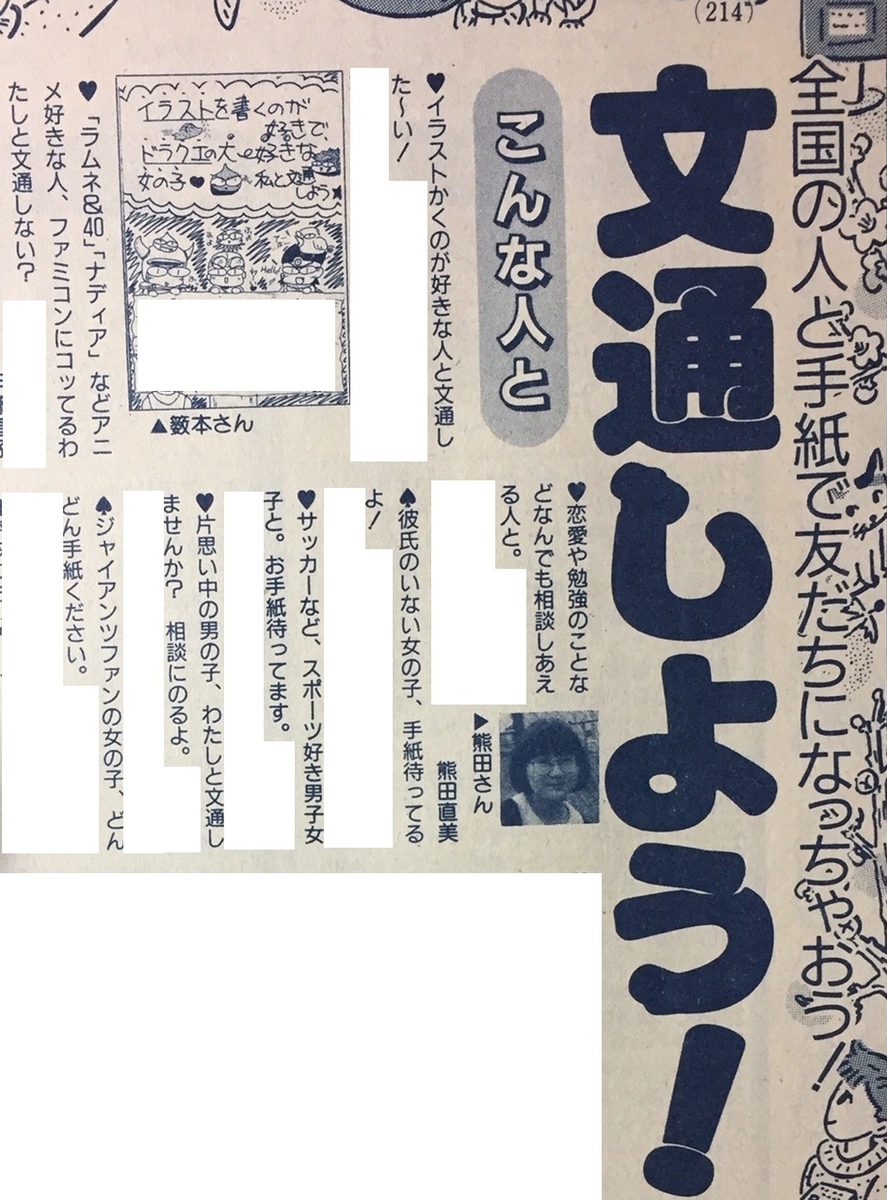 (214)
全国の人と手紙で友だちになっちゃおう!
文通しよう!
こんな人と
♥イラストかくのが好きな人と文通し
た〜い!
イラストを書くのが
好きで、
ドラクエの大好きな
女の子♥私と文通
しよう
Hello
▲籔本さん
♥「ラムネ&40」「ナディア」などアニ
メ好きな人、ファミコンにコッてるわ
たしと文通しない?
♥恋愛や勉強のことな
どなんでも相談しあえ
る人と。
▶熊田さん
熊田直美
♠彼氏のいない女の子、手紙待ってる
よ!
♥サッカーなど、スポーツ好き男子女
子と。お手紙待ってます。
♥片思い中の男の子、わたしと文通し
ませんか? 相談にのるよ。
♠ジャイアンツファンの女の子、どん
どん手紙ください。